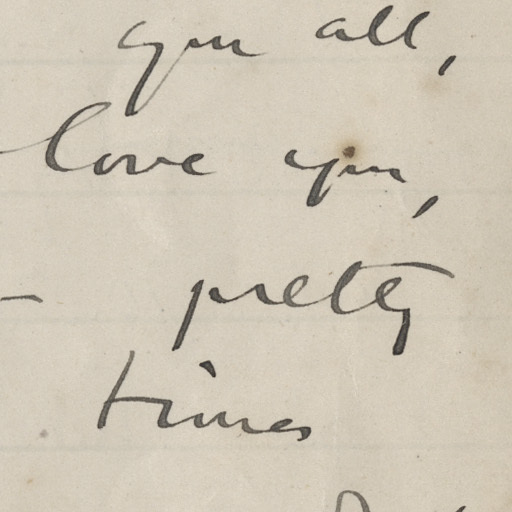 you all,
love you,
— pretty
times